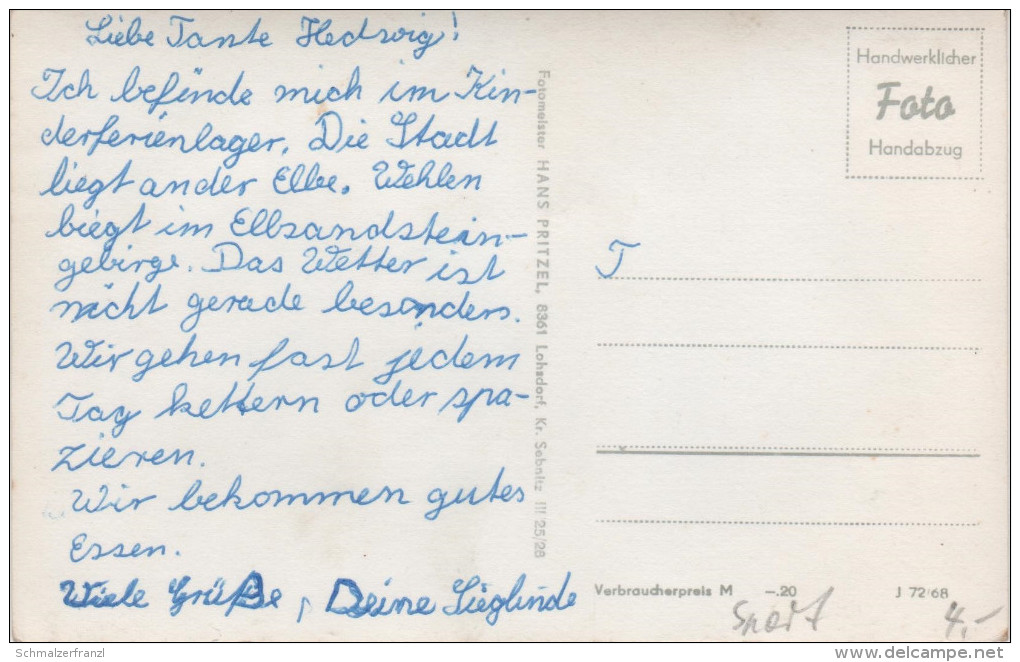 Liebe Tante Hedwig!
Ich befinde mich im Kin-
derferienlager. Die Stadt
liegt an der Elbe. Wehlen
liegt im Elbsandstein-
gebirge. Das Wetter ist
nicht gerade besonders.
Wir gehen fast jedem
Tag kettern oder spa-
zieren.
Wir bekommen gutes
Essen.
Viele Grüße, Deine Sieglinde
Fotomeister HANS PRITZEL, 8361 Lohsdorf, Kr. Sebnitz III 25/28
Handwerklicher
Foto
Handabzug
T
Verbraucherpreis M -.20 J 72/68
Sport 4.-
Schmalzerfranzl
delcampe.net